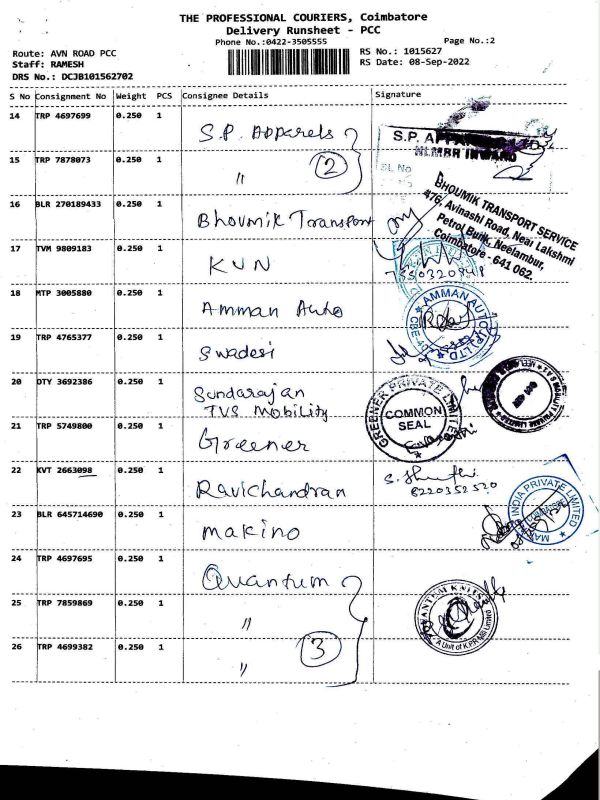 THE PROFESSIONAL COURIERS, Coimbatore
Delivery Runsheet - PCC
Phone No.:0422-3505555
Page No.:2
Route: AVN ROAD PCC
RS No.: 1015627
Staff: RAMESH
RS Date: 08-Sep-2022
DRS No.: DCJB101562702
S No Consignment No Weight PCS Consignee Details Signature
14 TRP 4697699 0.250 1 S.P. Apparels
S.P. APPARELS LTD
NLMBR INWARD
SL No
15 TRP 7878073 0.250 1 " 2
16 BLR 270189433 0.250 1 Bhoumik Transport
BHOUMIK TRANSPORT SERVICE
476, Avinashi Road, Near Lakshmi
Petrol Bunk, Neelambur,
Coimbatore - 641 062.
17 TVM 9809183 0.250 1 KVN
18 MTP 3005880 0.250 1 Amman Auto
AMMAN AUTO (P) LTD
CBE
19 TRP 4765377 0.250 1 Swadesi
20 DTY 3692386 0.250 1 Sundarajan
TVS Mobility
GREENER PRIVATE LIMITED
COMMON
SEAL
21 TRP 5749800 0.250 1 Greener
22 KVT 2663098 0.250 1 Ravichandran
8220352520
23 BLR 645714690 0.250 1 makino
INDIA PRIVATE LIMITED
24 TRP 4697695 0.250 1 Quantum
QUANTUM KNITS
A Unit of K.P.R. Mill Limited
25 TRP 7859869 0.250 1 "
26 TRP 4699382 0.250 1 " 3